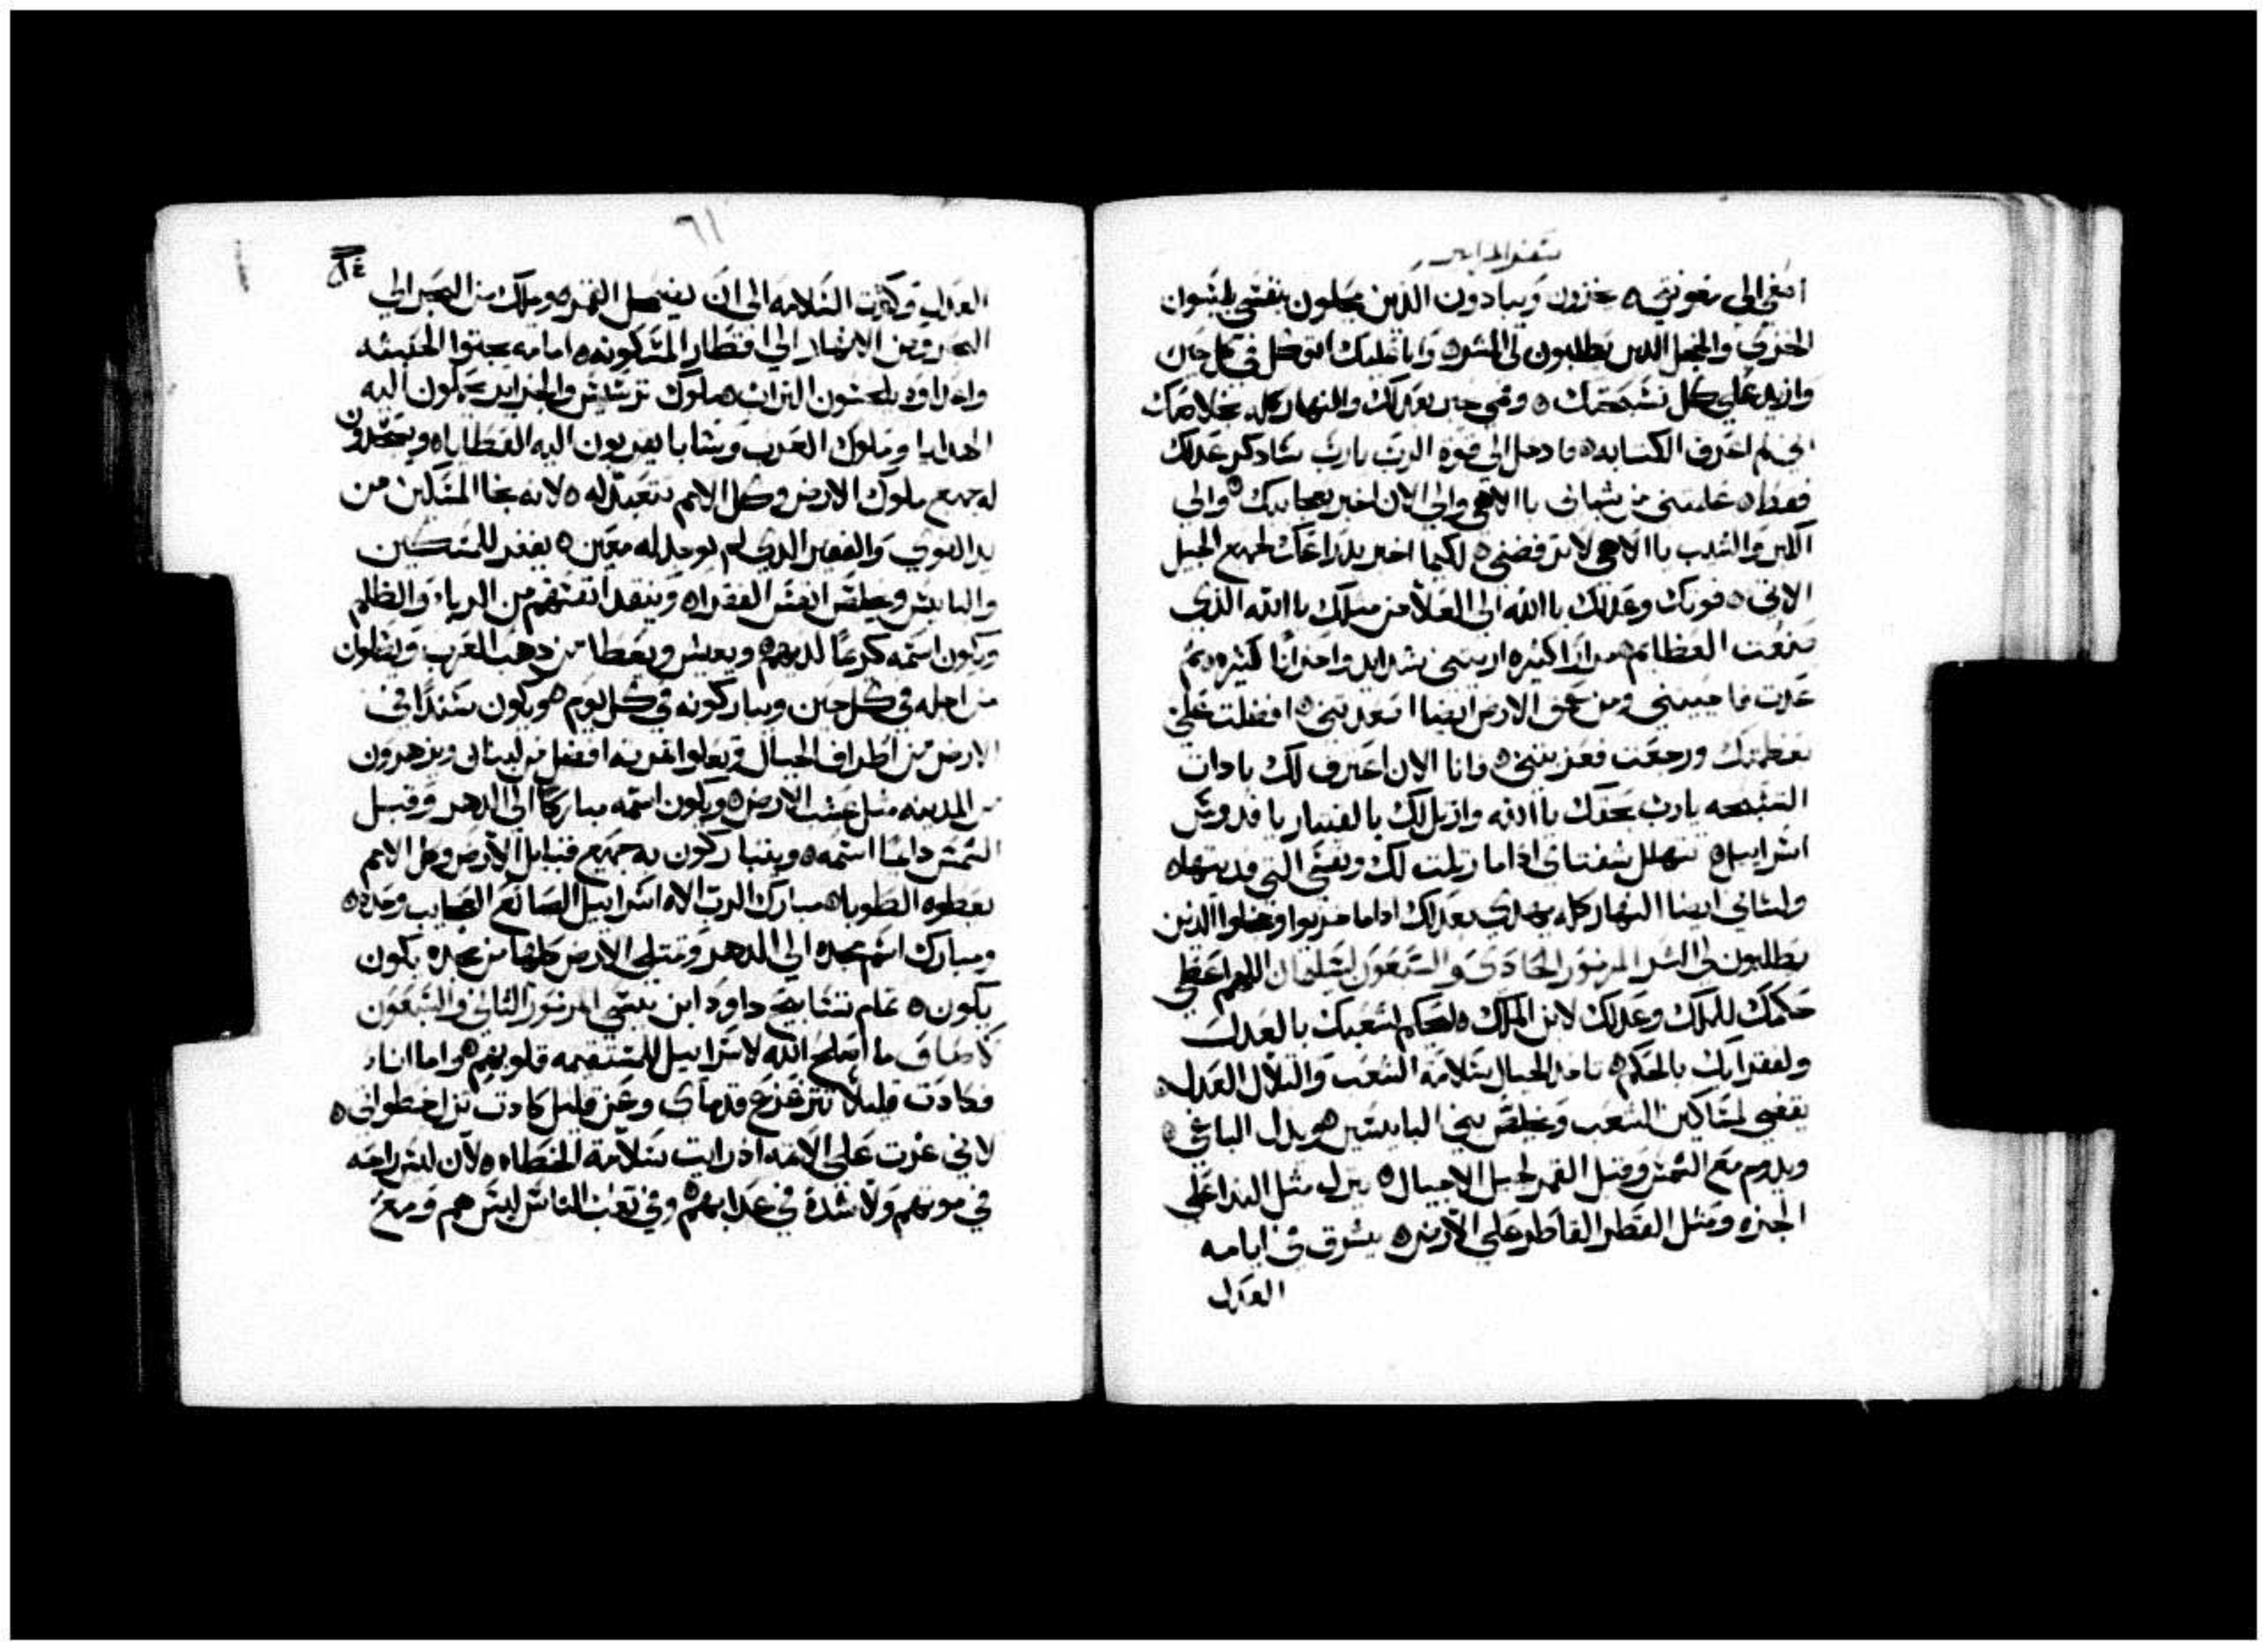 سفر المزامير
اصغي الي معونتي ه يخزون ويبادون الذين يمحلون بنفسي يلبسون
الخزي والخجل الذين يطلبون لي الشر ه وانا عليك اتوكل في كل حين
وازيد علي كل تسبحتك ه وفمي يخبر بعدلك والنهار كله بخلاصك
اني لم اعرف الكتابه ه فادخل الي قوة الرب يارب ساذكر عدلك
فقط ه علمتني من شبابي يا الاهي والي الان اخبر بعجايبك ه والي
الكبر والشيب يا الاهي لا ترفضني ه لكيما اخبر بذراعك لجميع الجيل
الاتي ه قوتك وعدلك يا الله الي العلا من مثلك يا الله الذي
صنعت العظايم ه مرارا كثيره اريتني شدايد واحزانا كثيره ثم
عدت فاحييتني ومن عمق الارض ايضا اصعدتني ه افضلت علي
بعظمتك ورجعت فعزيتني ه فانا الان اعترف لك بادات
التسبحه يارب بحقك يا الله وارتل لك بالقيتار يا قدوس
اسراييل ه تتهلل شفتاي اذا ما رتلت لك ونفسي التي فديتها ه
ولساني ايضا النهار كله يهدي بعدلك اذا ما خزيوا وخجلوا الذين
يطلبون لي الشر المزمور الحادي والسبعون لسليمان اللهم اعطي
حكمك للملك وعدلك لابن الملك ه ليحكم لشعبك بالعدل
ولفقرايك بالحكم ه تاخذ الجبال سلامة الشعب والتلال العدل ه
يقضي لمساكين الشعب ويخلص بني البايسين ه ويذل الباغي ه
ويدوم مع الشمس وقبل القمر لجيل الاجيال ه ينزل مثل الندا علي
الجزه ومثل القطر القاطر علي الارض ه يشرق في ايامه
العدل
٦١
العدل وكثرت السلامه الي ان يضمحل القمر ه ويملك من البحر الي
البحر ومن الانهار الي اقطار المسكونه ه امامه يجثوا الحبشه
واعداوه يلحسون التراب ه ملوك ترشيش والجزاير يحملون اليه
الهدايا وملوك العرب وسابا يقربون اليه العطايا ه ويسجدون
له جميع ملوك الارض وكل الامم تتعبد له ه لانه نجا المسكين من
يد القوي والفقير الذي لم يوجد له معين ه يغفر للمسكين
والبايس ويخلص انفس الفقرا ه وينقذ انفسهم من الرياء والظلم
ويكون اسمه كريما لديهم ه ويعيش ويعطا من ذهب العرب ويصلون
من اجله في كل حين ويباركونه في كل يوم ه ويكون سندا في
الارض من اطراف الجبال وتعلوا ثمرته افضل من لبنان ويزهرون
من المدينه مثل عشب الارض ه ويكون اسمه مباركا الي الدهر وقبل
الشمس دايما اسمه ه ويتباركون به جميع قبايل الارض وكل الامم
يعطوه الطوبا ه مبارك الرب الاه اسراييل الصانع العجايب وحده ه
ومبارك اسم مجده الي الدهر وتمتلي الارض كلها من مجده يكون
يكون ه تمام تسابيح داود ابن يسي المزمور الثاني والسبعون
لاصاف ما اصلح الله لاسراييل للمستقيمه قلوبهم ه واما انا
فكادت قليلا تتزعزع قدماي وعن قليل كادت تزل خطواتي ه
لاني غرت علي الاثمه اذ رايت سلامة الخطاه ه لان ليس راحه
في موتهم ولا شدة في عذابهم ه وفي تعب الناس ليس هم ومع